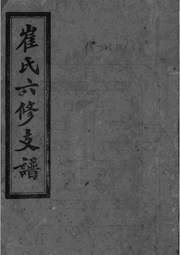 崔氏六修支譜